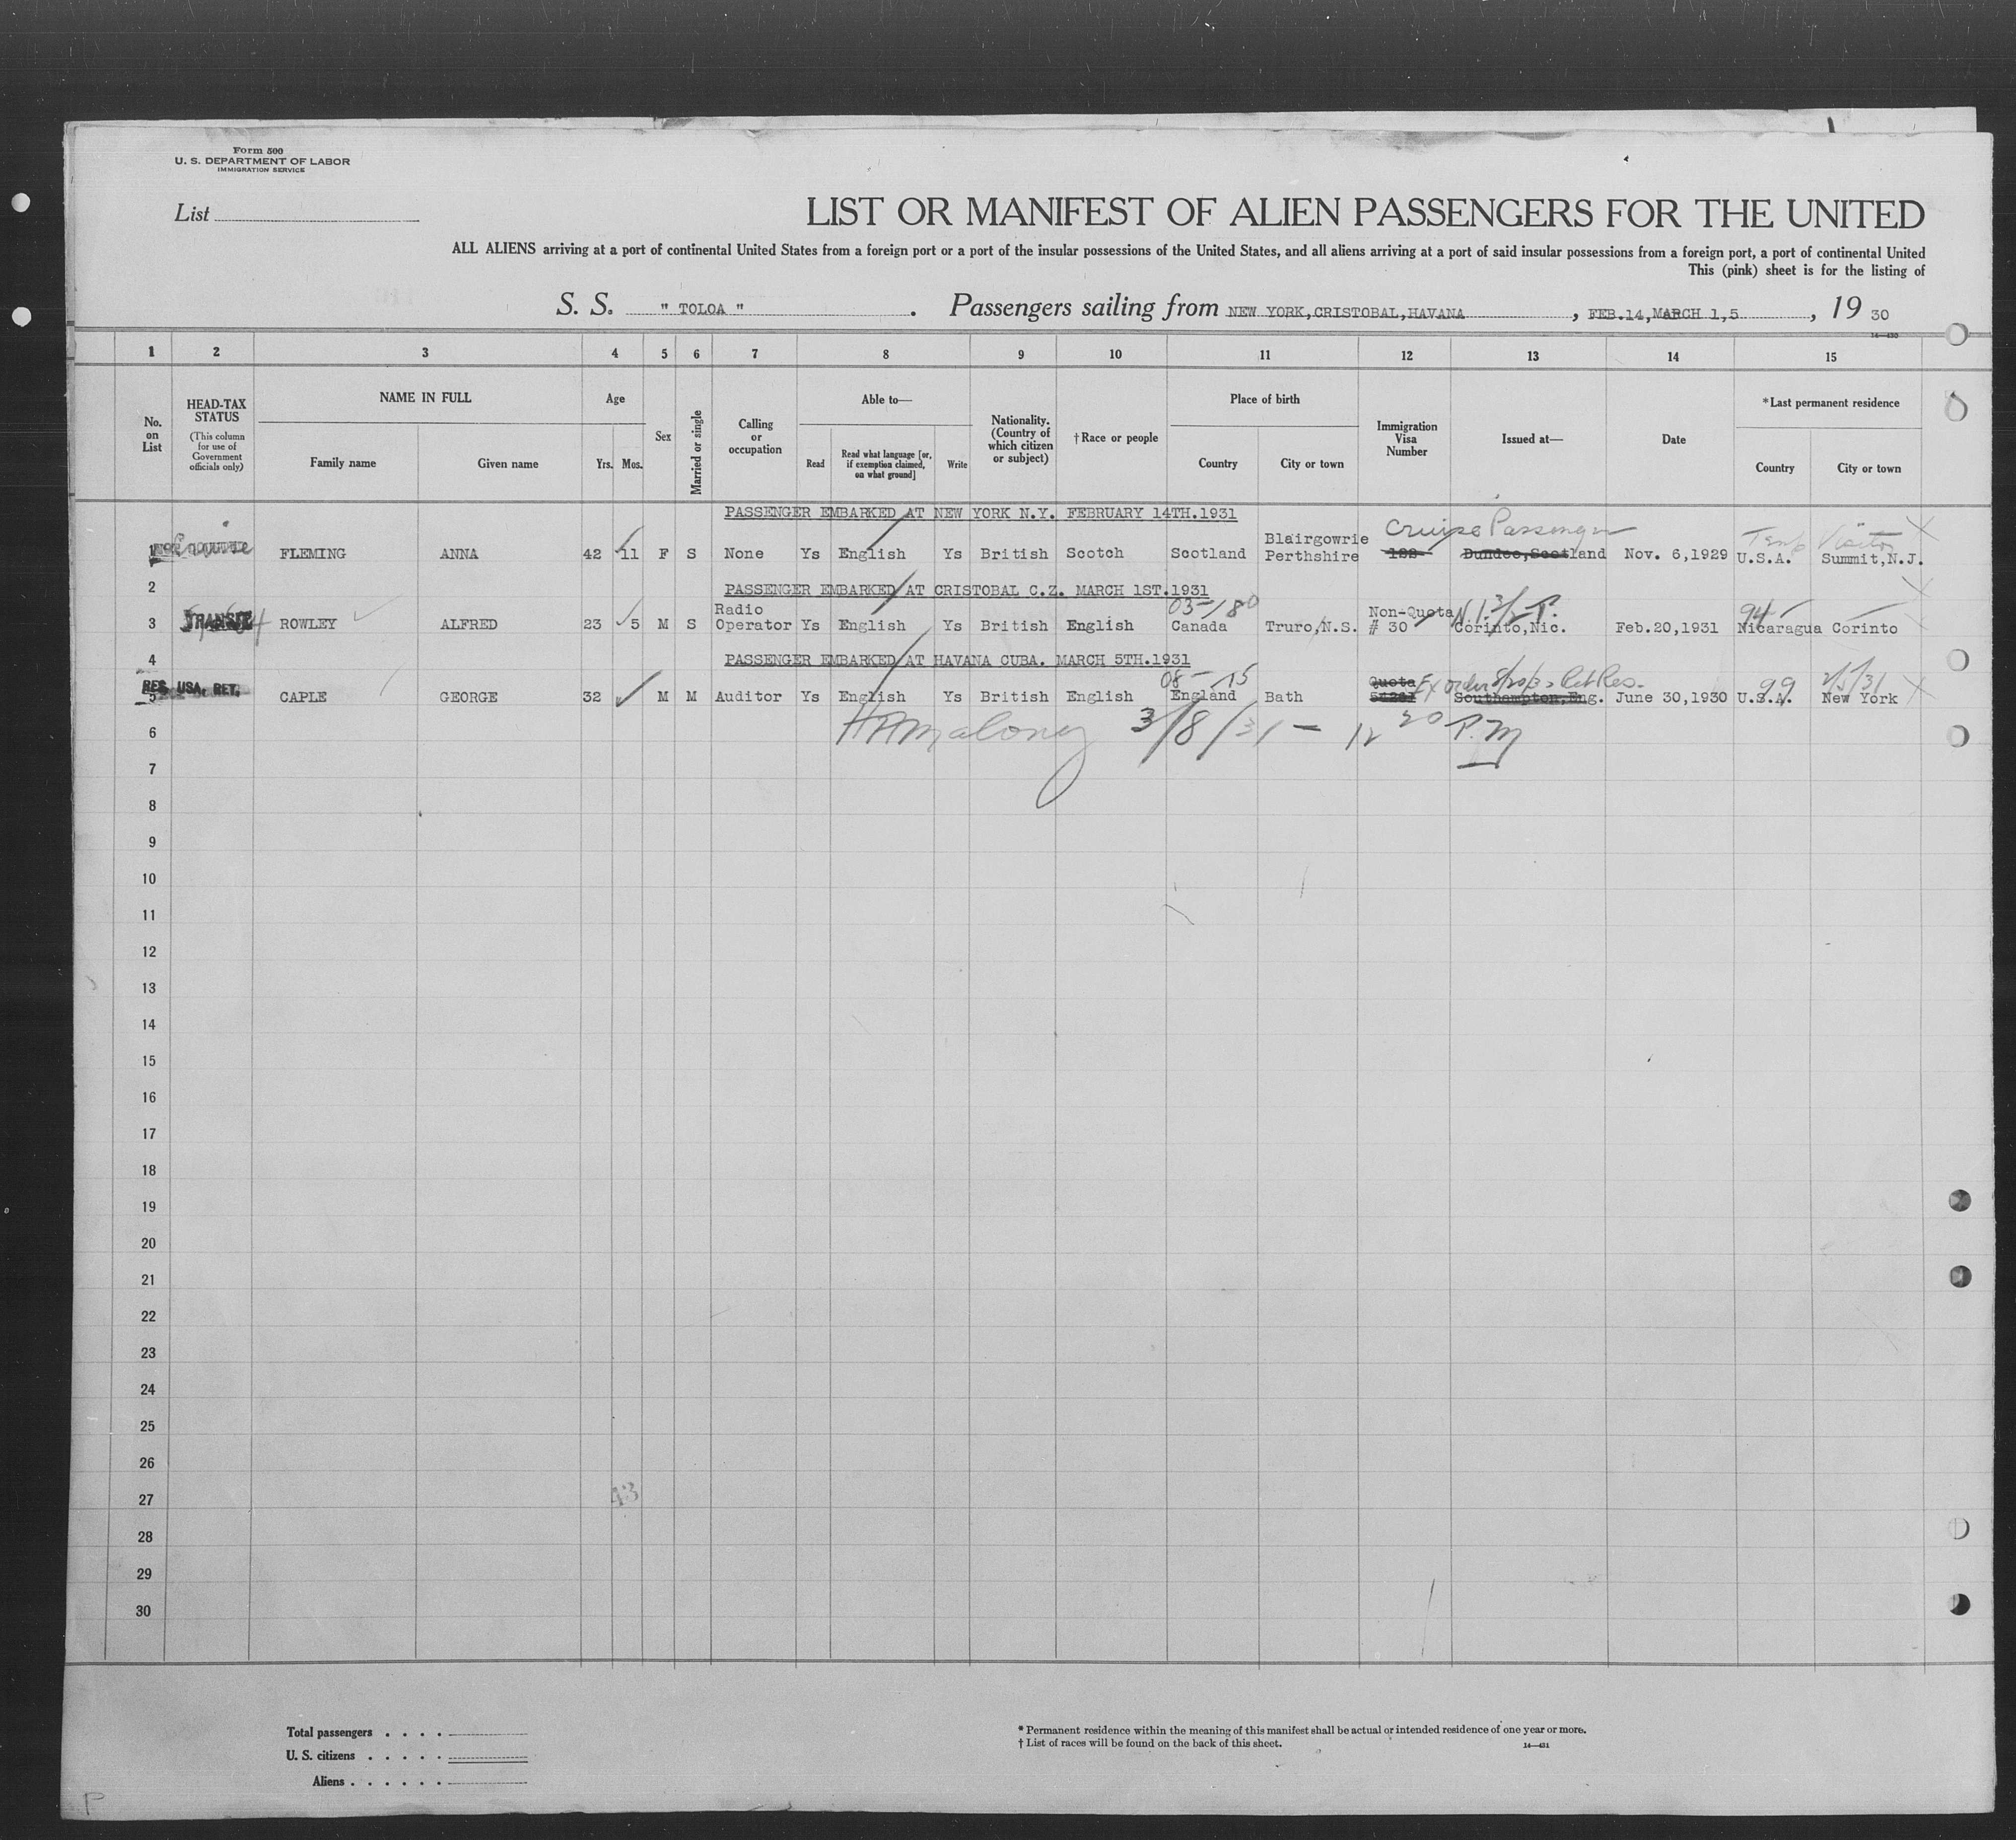 Form 500
U. S. DEPARTMENT OF LABOR
IMMIGRATION SERVICE
List
LIST OR MANIFEST OF ALIEN PASSENGERS FOR THE UNITED
ALL ALIENS arriving at a port of continental United States from a foreign port or a port of the insular possessions of the United States, and all aliens arriving at a port of said insular possessions from a foreign port, a port of continental United
This (pink) sheet is for the listing of
S. S. " TOLOA " . Passengers sailing from NEW YORK,CRISTOBAL,HAVANA , FEB.14,MARCH 1,5 , 19 30
14—430
1 2 3 4 5 6 7 8 9 10 11 12 13 14 15
No. on List
HEAD-TAX STATUS (This column for use of Government officials only)
NAME IN FULL
Family name
Given name
Age
Yrs. Mos.
Sex
Married or single
Calling or occupation
Able to—
Read
Read what language [or, if exemption claimed, on what ground]
Write
Nationality. (Country of which citizen or subject)
†Race or people
Place of birth
Country
City or town
Immigration Visa Number
Issued at—
Date
*Last permanent residence
Country
City or town
PASSENGER EMBARKED AT NEW YORK N.Y. FEBRUARY 14TH.1931
Cruise Passenger
Temp Visitor
1 FLEMING ANNA 42 11 F S None Ys English Ys British Scotch Scotland Blairgowrie Perthshire 188 Dundee,Scotland Nov. 6,1929 U.S.A. Summit,N.J.
2 PASSENGER EMBARKED AT CRISTOBAL C.Z. MARCH 1ST.1931
03-180
94
3 TRANSIT ROWLEY ALFRED 23 5 M S Radio Operator Ys English Ys British English Canada Truro,N.S. Non-Quota # 30 Corinto,Nic. Feb.20,1931 Nicaragua Corinto
4 PASSENGER EMBARKED AT HAVANA CUBA. MARCH 5TH.1931
99
RES. USA. RET.
5 CAPLE GEORGE 32 M M Auditor Ys English Ys British English England Bath Quota Southampton,Eng. June 30,1930 U.S.A. New York
HAMaloney 3/8/31 - 12 20 P.M
6
7
8
9
10
11
12
13
14
15
16
17
18
19
20
21
22
23
24
25
26
27
43
28
29
30
Total passengers . . . .
U. S. citizens . . . . .
Aliens . . . . . .
* Permanent residence within the meaning of this manifest shall be actual or intended residence of one year or more.
† List of races will be found on the back of this sheet.
14—431
P